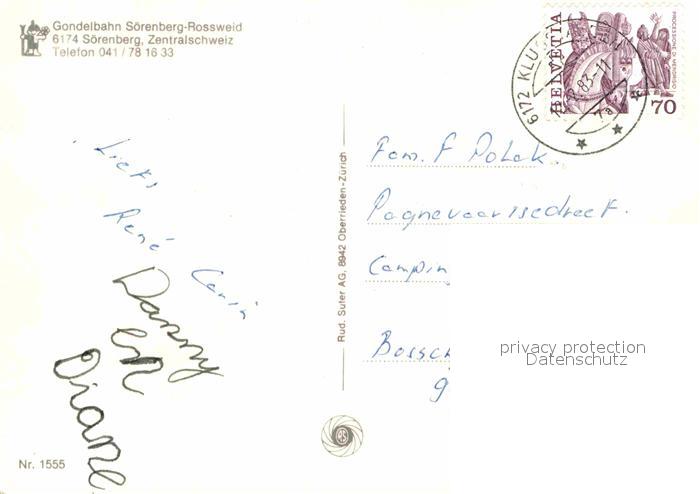 Gondelbahn Sörenberg-Rossweid
6174 Sörenberg, Zentralschweiz
Telefon 041 / 78 16 33
6172 KLU
83-11
HELVETIA
PROCESSIONE DI MENDRISIO
70
Liefs
René
Danny
en
Diane
Nr. 1555
Rud. Suter AG, 8942 Oberrieden-Zürich
Fam. F Polak.
Campin
Bossch
9
privacy protection
Datenschutz